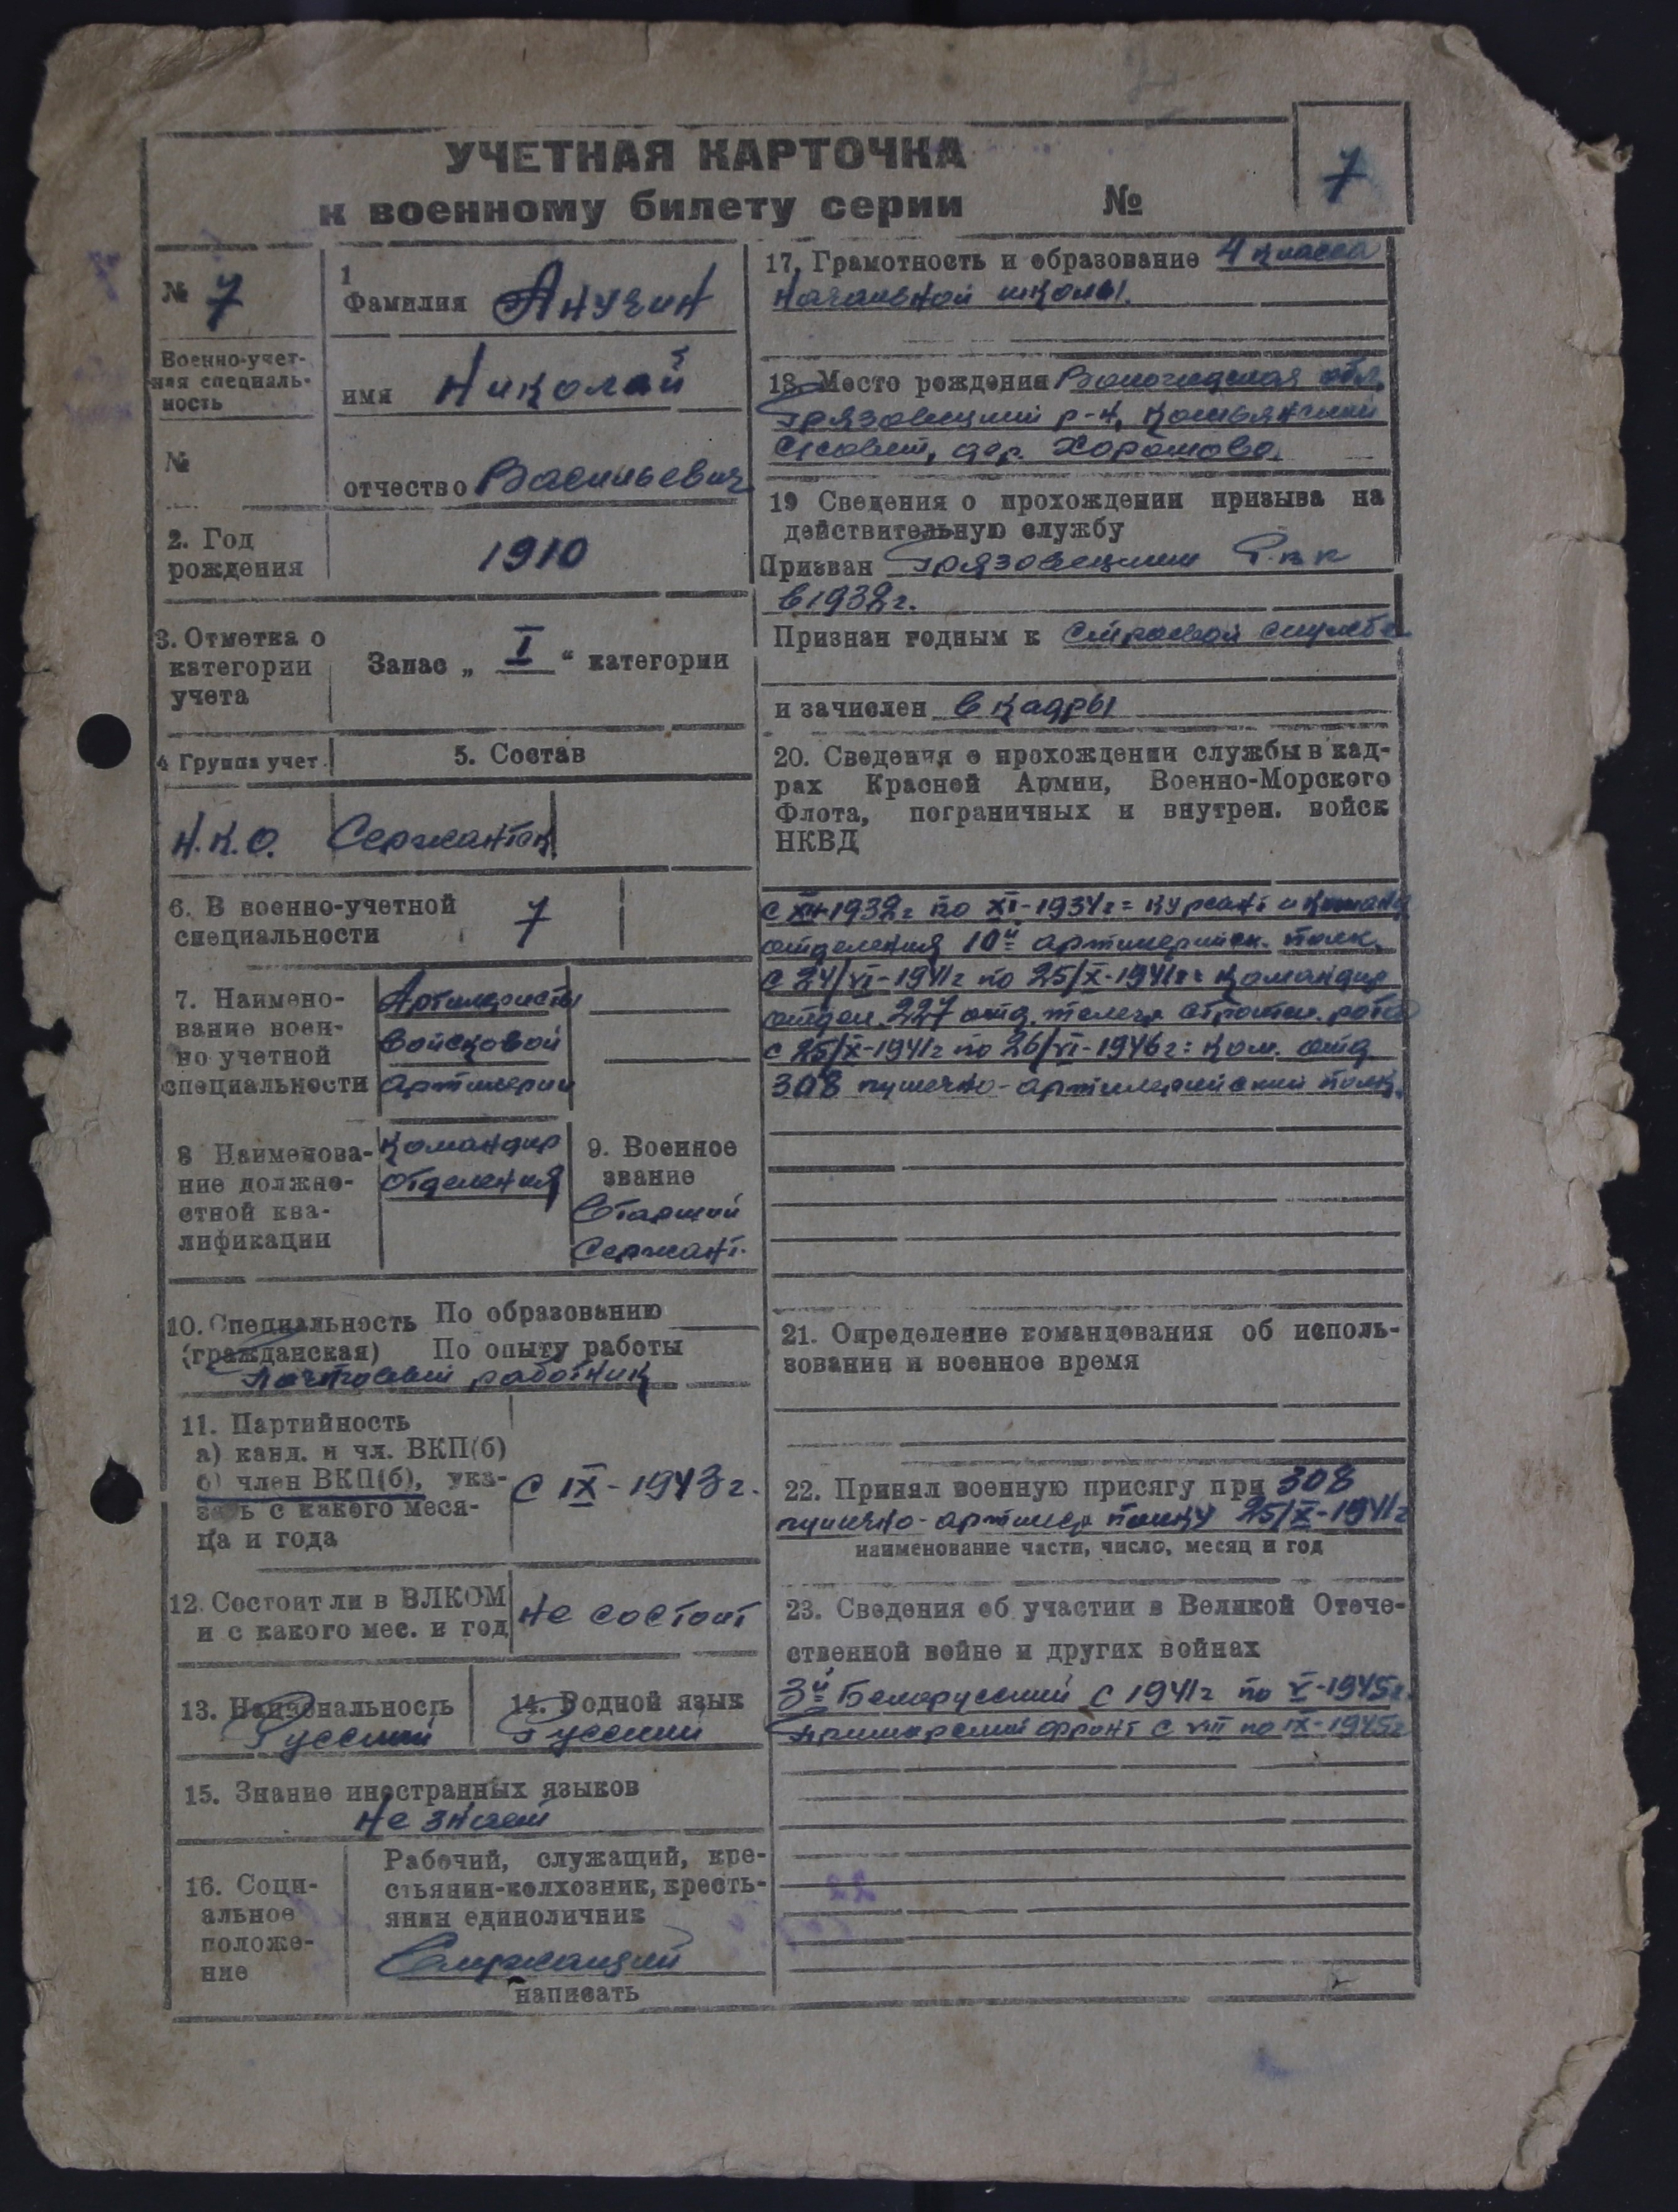 УЧЕТНАЯ КАРТОЧКА
к военному билету серии №
7
№ 7
1
Фамилия Анучин
Военно-учет-
ная специаль-
ность
имя Николай
№
отчество Васильевич
2. Год
рождения
1910
3. Отметка о
категории
учета
Запас „ I “ категории
4 Группа учет.
5. Состав
Н.К.О. Сержантск
6. В военно-учетной
специальности
7
7. Наимено-
вание воен-
но учетной
специальности
Артилеристы
войсковой
артилерии
8 Наименова-
ние должно-
стной ква-
лификации
Командир
отделения
9. Военное
звание
Старший
Сержант.
10. Специальность
(гражданская)
По образованию
По опыту работы
Почтовый работник
11. Партийность
а) канд. и чл. ВКП(б)
б) член ВКП(б), ука-
зать с какого меся-
ца и года
с IX - 1943 г.
12. Состоит ли в ВЛКОМ
и с какого мес. и год
не состоит
13. Национальность
Русский
14. Родной язык
Русский
15. Знание иностранных языков
не знает
16. Соци-
альное
положе-
ние
Рабочий, служащий, кре-
стьянин-колхозник, кресть-
янин единоличник
Служащий
написать
17. Грамотность и образование 4 класса
начальной школы.
18. Место рождения Вологодская обл.
Грязовецкий р-н,
С/совет, дер. Хорошово.
19 Сведения о прохождении призыва на
действительную службу
Призван Грязовецким Р.в.к
в 1932 г.
Признан годным к строевой службе
и зачислен в кадры
20. Сведения о прохождении службы в кад-
рах Красней Армии, Военно-Морского
Флота, пограничных и внутрен. войск
НКВД
с XII-1932г по XI-1934г = курсант и команд
отделения 10й артилерийск. полк.
с 24/VI-1941г по 25/X-1941г: Командир
отдел. 227 отд. телегр. строител. рота
с 25/X-1941г по 26/VI-1946г: Ком. отд
308 пушечно-артилерийский полк.
21. Определение командования об исполь-
зования и военное время
22. Принял военную присягу при 308
пушечно-артилер полку 25/X-1941г
наименование части, число, месяц и год
23. Сведения об участии в Великой Отече-
ственной войне и других войнах
3й Белорусский с 1941г по V-1945г.
Приморский фронт с VIII по IX-1945г